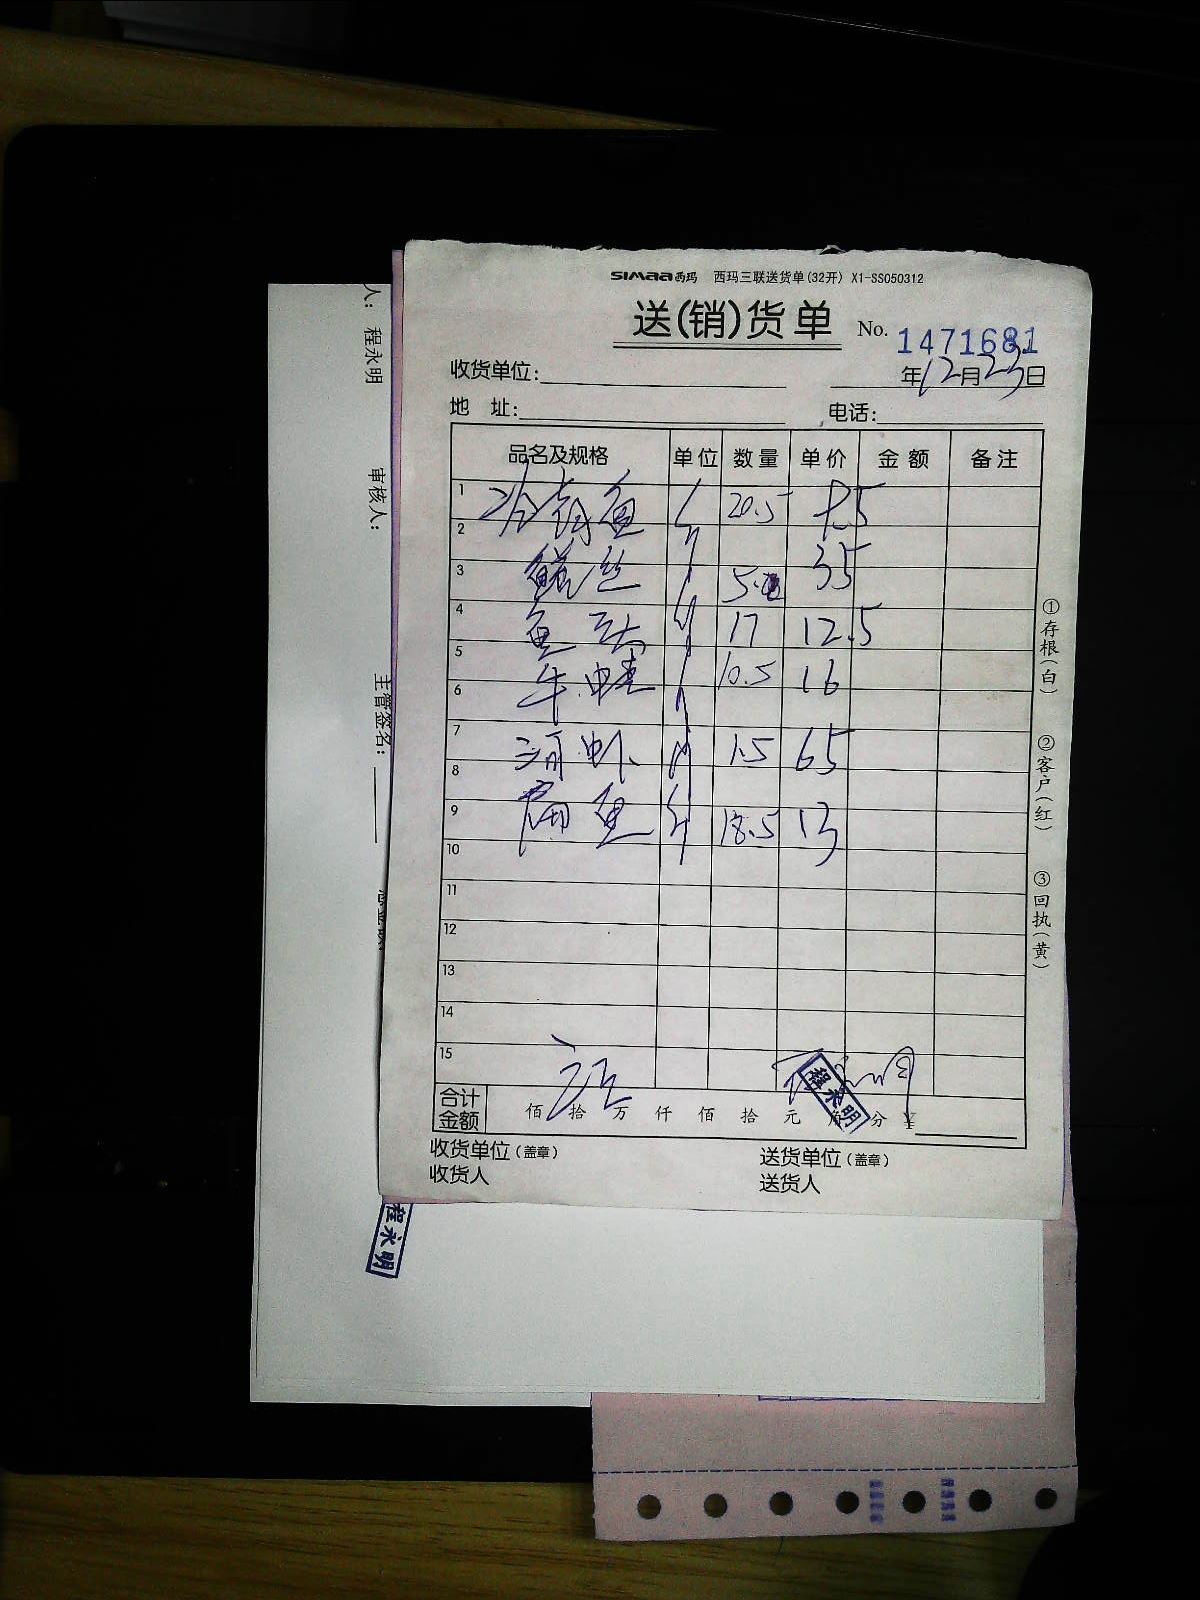 SIMAA西玛 西玛三联送货单(32开) X1-SS050312
送(销)货单 No. 1471681
收货单位: 年12月23日
地 址: 电话:
品名及规格 单位 数量 单价 金额 备注
1 鱼 20.5
2
3 鳝丝 35
4 鱼 17 12.5
5 牛蛙 10.5 16
6
7 河虾 1.5 65
8
9 鱼 18.5 13
10
11
12
13
14
15
合计金额 佰 拾 万 仟 佰 拾 元 角 分 ¥
程永明
收货单位(盖章) 送货单位(盖章)
收货人 送货人
①存根(白) ②客户(红) ③回执(黄)
人: 程永明 审核人: 主管签名:
程永明